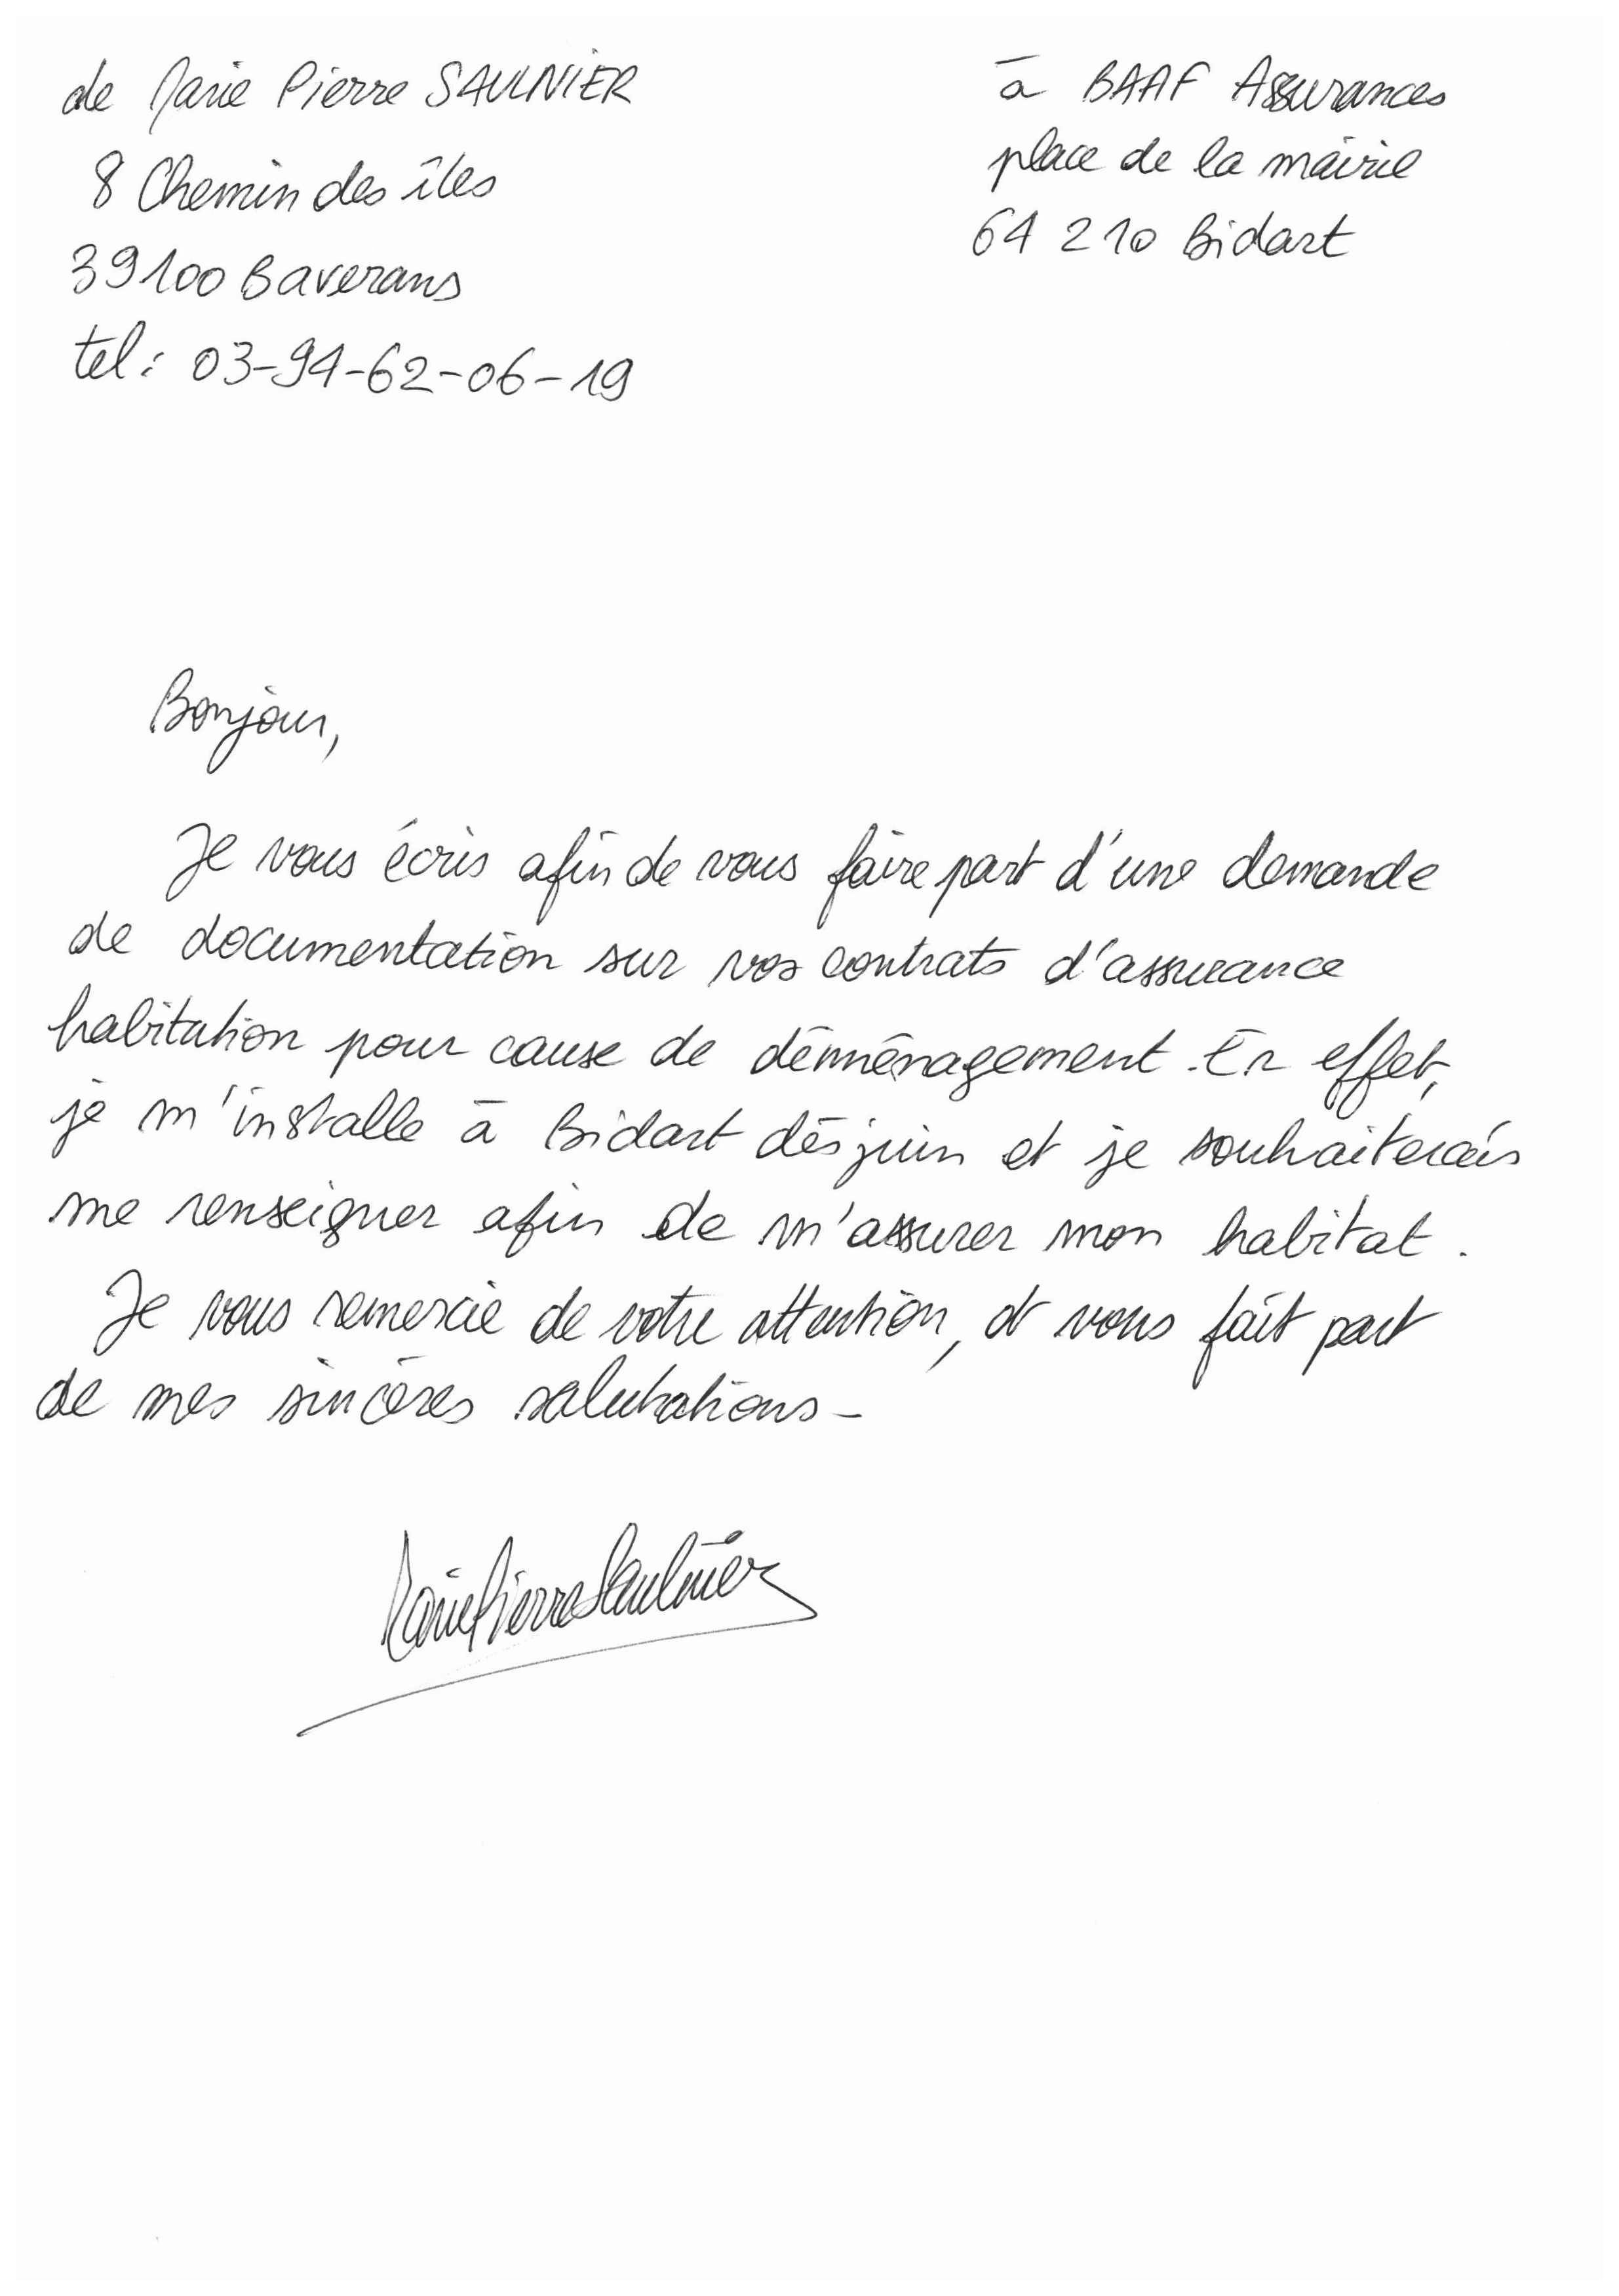 de Marie Pierre SAULNIER
8 Chemin des îles
39100 Baverans
tel: 03-94-62-06-19
à BAAF Assurances
place de la mairie
64 210 Bidart
Bonjour,
Je vous écris afin de vous faire part d'une demande
de documentation sur vos contrats d'assurance
habitation pour cause de déménagement. En effet,
je m'installe à Bidart dès juin et je souhaiterais
me renseigner afin de m'assurer mon habitat.
Je vous remercie de votre attention, et vous fait part
de mes sincères salutations-
Marie Pierre Saulnier